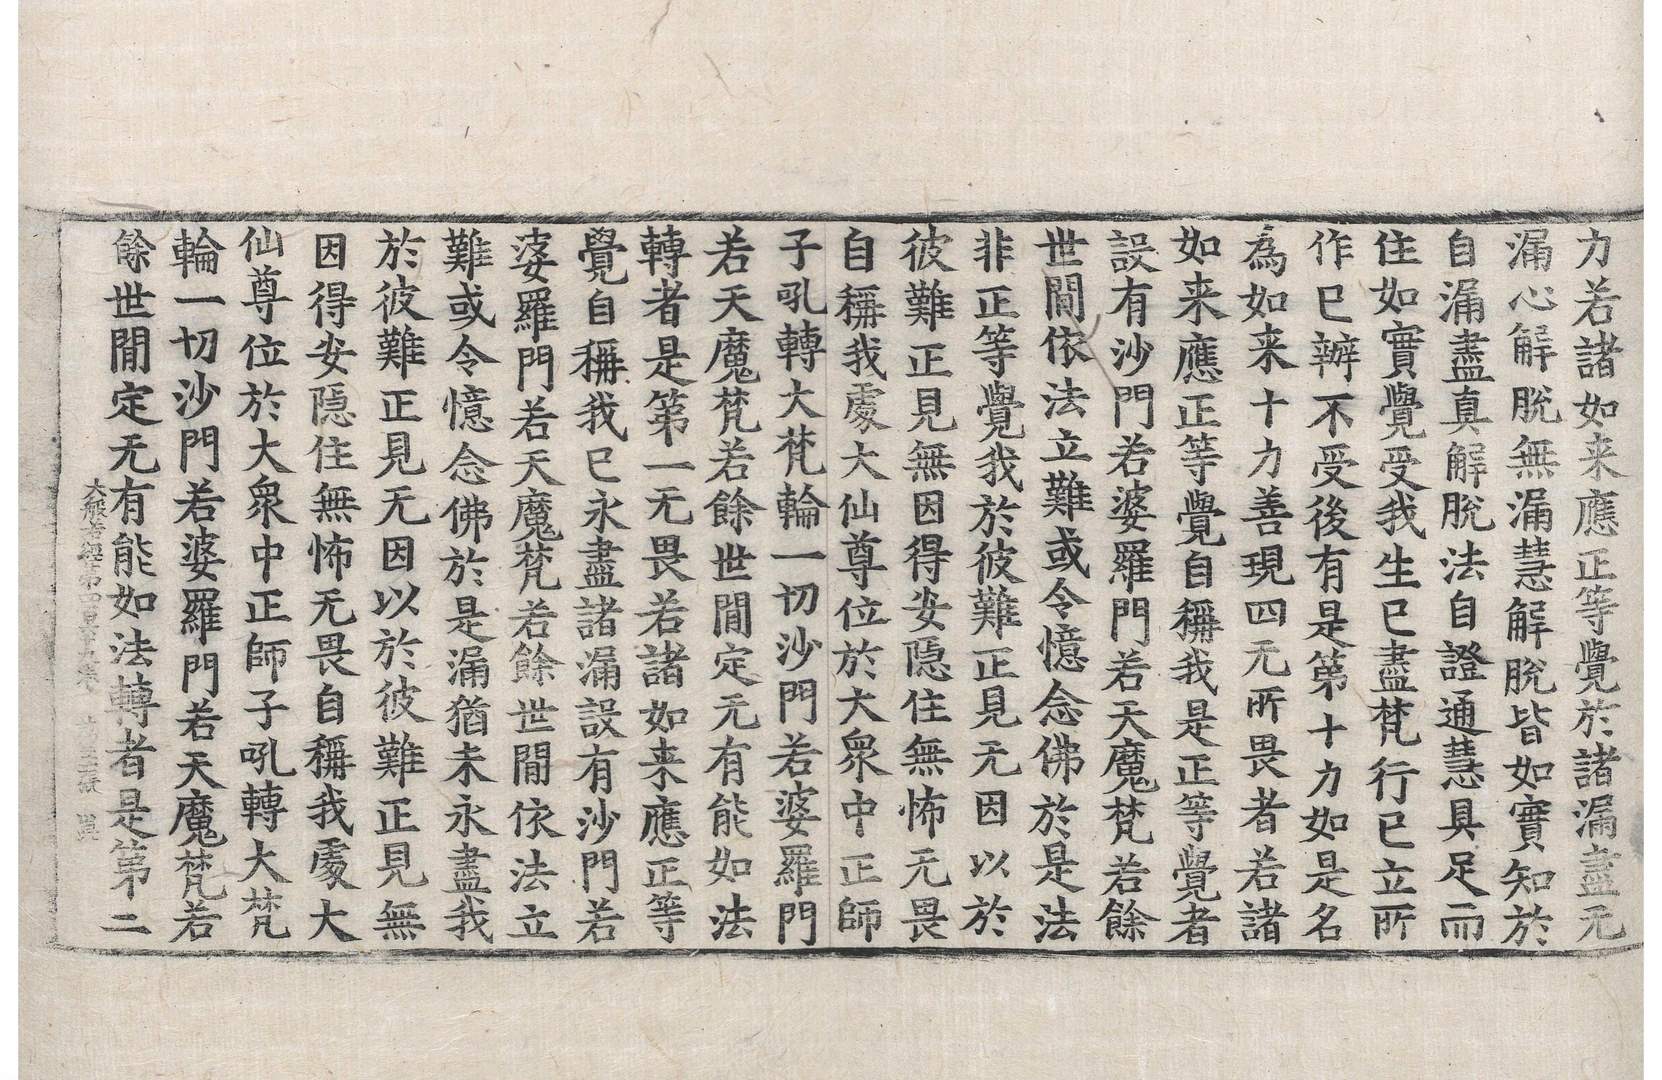 力若諸如来應正等覺於諸漏盡无
漏心解脫無漏慧解脫皆如實知於
自漏盡真解脫法自證通慧具足而
住如實覺受我生已盡梵行已立所
作已辦不受後有是第十力如是名
為如来十力善現四无所畏者若諸
如来應正等覺自稱我是正等覺者
設有沙門若婆羅門若天魔梵若餘
世間依法立難或令憶念佛於是法
非正等覺我於彼難正見无因以於
彼難正見無因得安隱住無怖无畏
自稱我處大仙尊位於大眾中正師
子吼轉大梵輪一切沙門若婆羅門
若天魔梵若餘世間定无有能如法
轉者是第一无畏若諸如来應正等
覺自稱我已永盡諸漏設有沙門若
婆羅門若天魔梵若餘世間依法立
難或令憶念佛於是漏猶未永盡我
於彼難正見无因以於彼難正見無
因得安隱住無怖无畏自稱我處大
仙尊位於大眾中正師子吼轉大梵
輪一切沙門若婆羅門若天魔梵若
餘世間定无有能如法轉者是第二
大般若經第四百十五卷